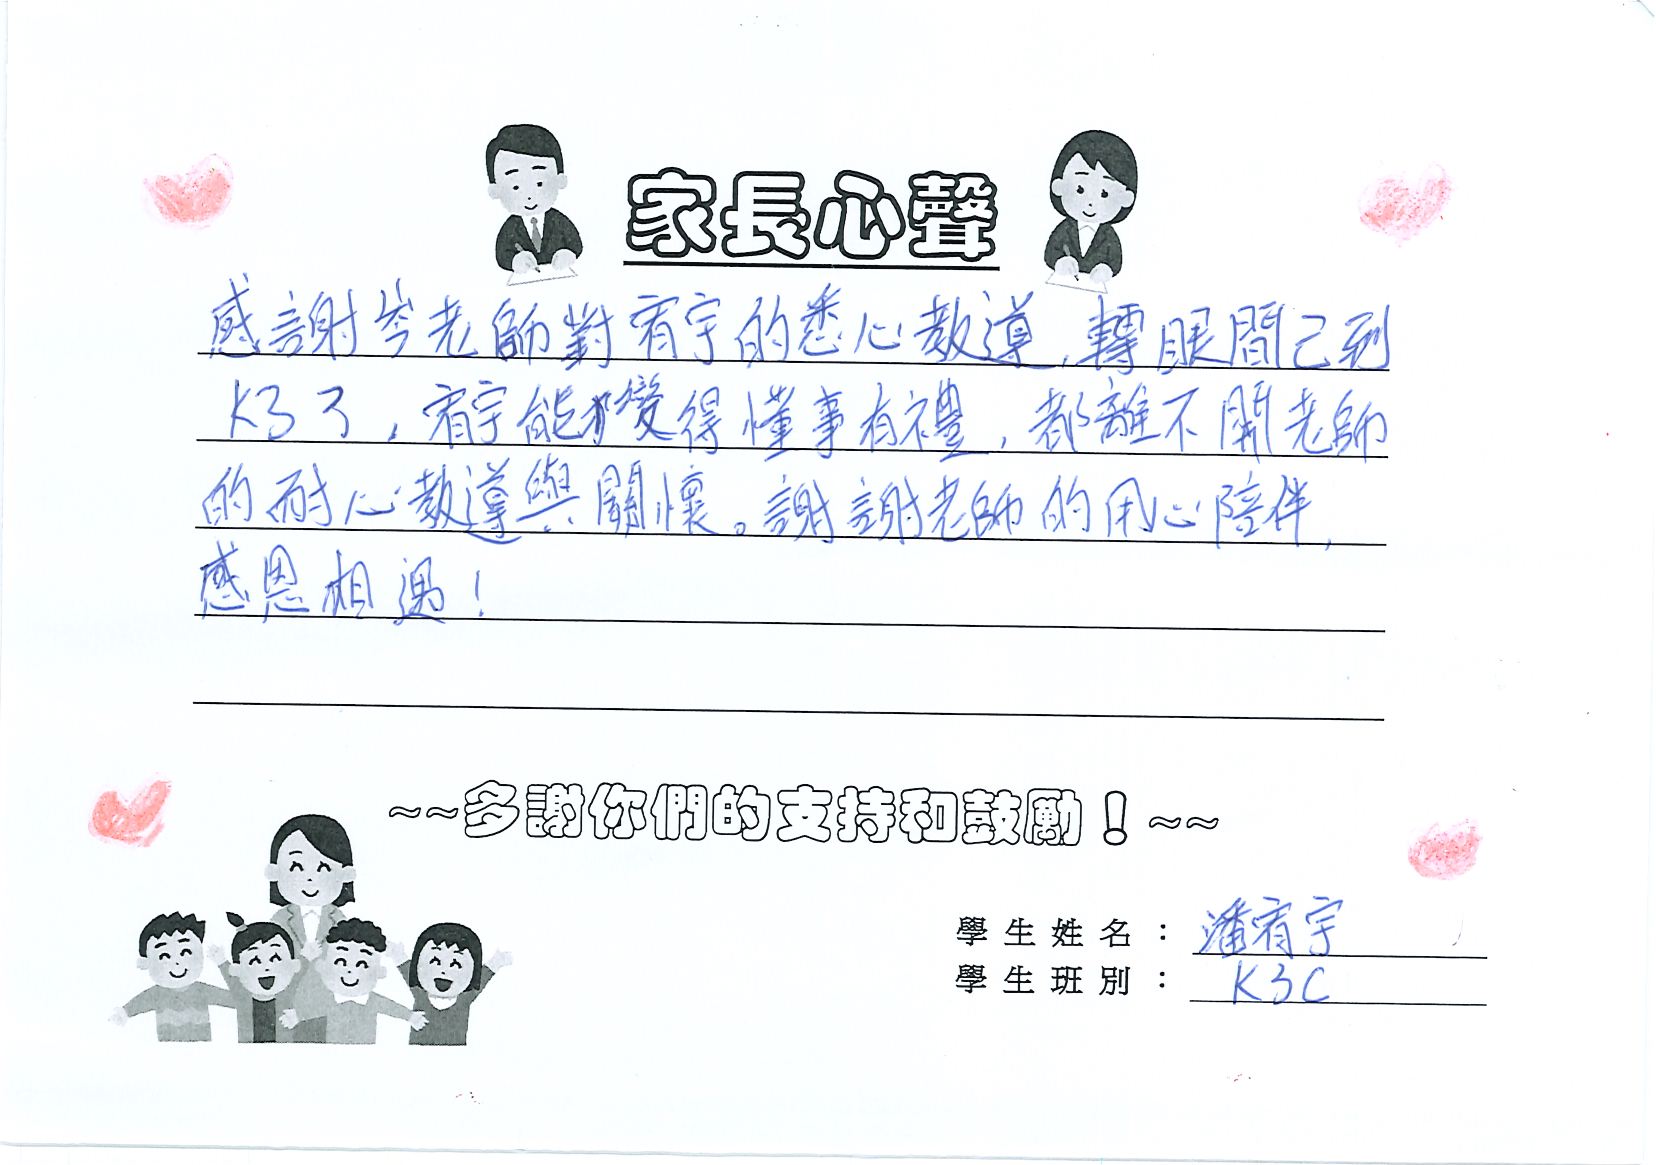 家長心聲
感謝岑老師對宥宇的悉心教導,轉眼間已到
K3了,宥宇能變得懂事有禮,都離不開老師
的耐心教導與關懷。謝謝老師的用心陪伴,
感恩相遇!
~~多謝你們的支持和鼓勵!~~
學生姓名:潘宥宇
學生班別:K3C